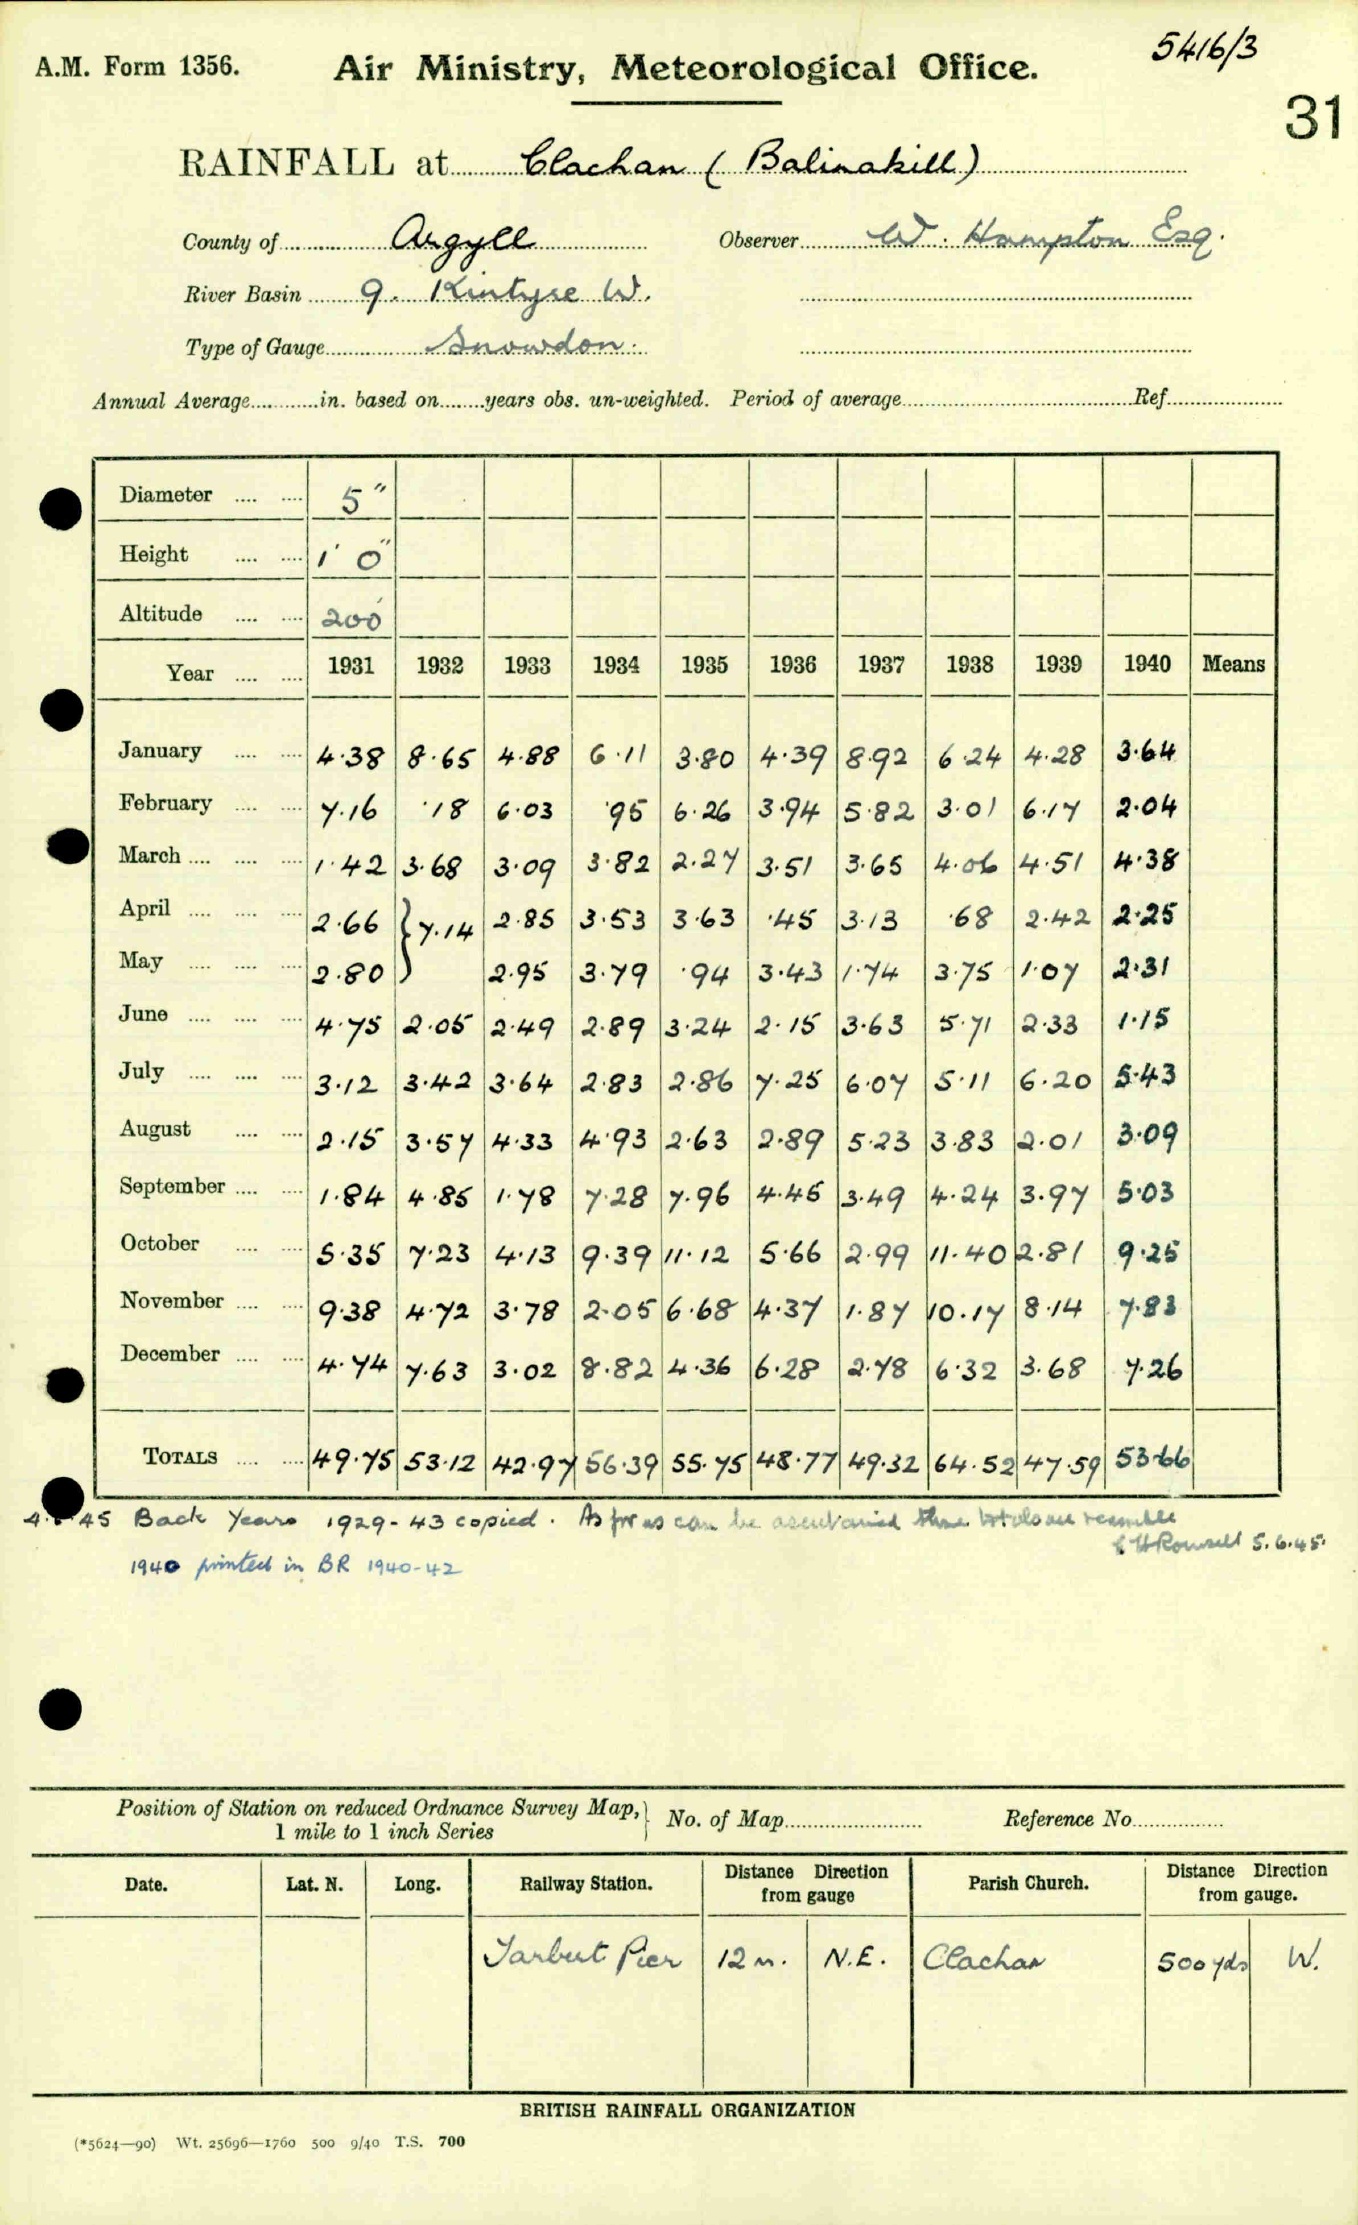 5416/3
A.M. Form 1356. Air Ministry, Meteorological Office.
31
RAINFALL at Clachan (Balinakill)
County of Argyll Observer W. Hampton Esq.
River Basin 9. Kintyre W.
Type of Gauge Snowdon.
Annual Average in. based on years obs. un-weighted. Period of average Ref
Diameter 5"
Height 1' 0"
Altitude 200'
Year 1931 1932 1933 1934 1935 1936 1937 1938 1939 1940 Means
January 4.38 8.65 4.88 6.11 3.80 4.39 8.92 6.24 4.28 3.64
February 7.16 .18 6.03 .95 6.26 3.94 5.82 3.01 6.17 2.04
March 1.42 3.68 3.09 3.82 2.27 3.51 3.65 4.06 4.51 4.38
April 2.66 } 7.14 2.85 3.53 3.63 .45 3.13 .68 2.42 2.25
May 2.80 2.95 3.79 .94 3.43 1.74 3.75 1.07 2.31
June 4.75 2.05 2.49 2.89 3.24 2.15 3.63 5.71 2.33 1.15
July 3.12 3.42 3.64 2.83 2.86 7.25 6.07 5.11 6.20 5.43
August 2.15 3.57 4.33 4.93 2.63 2.89 5.23 3.83 2.01 3.09
September 1.84 4.85 1.78 7.28 7.96 4.45 3.49 4.24 3.97 5.03
October 5.35 7.23 4.13 9.39 11.12 5.66 2.99 11.40 2.81 9.25
November 9.38 4.72 3.78 2.05 6.68 4.37 1.87 10.17 8.14 7.83
December 4.74 7.63 3.02 8.82 4.36 6.28 2.78 6.32 3.68 7.26
TOTALS 49.75 53.12 42.97 56.39 55.75 48.77 49.32 64.52 47.59 53.66
45 Back Years 1929-43 copied. As far as can be ascertained these totals are
5.6.45.
1940 printed in BR 1940-42
Position of Station on reduced Ordnance Survey Map, } No. of Map Reference No
1 mile to 1 inch Series
Date. Lat. N. Long. Railway Station. Distance Direction from gauge Parish Church. Distance Direction from gauge.
Tarbert Pier 12 m. N.E. Clachan 500 yds W.
BRITISH RAINFALL ORGANIZATION
(*5624—90) Wt. 25696—1760 500 9/40 T.S. 700